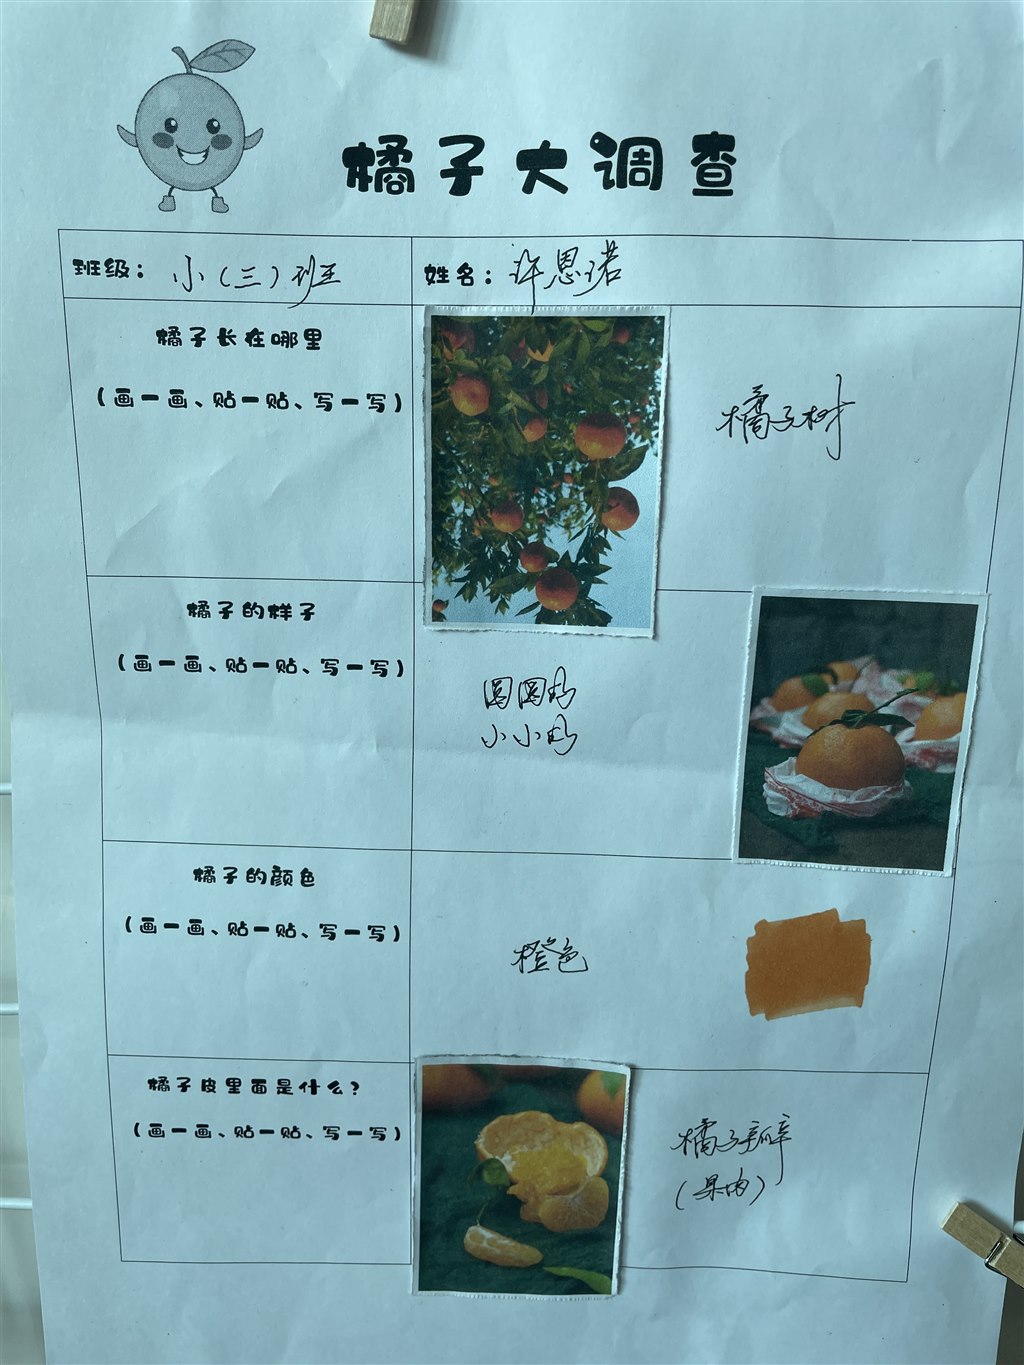 橘子大调查
班级：小（三）班
姓名：许恩诺
橘子长在哪里
（画一画、贴一贴、写一写）
橘子树
橘子的样子
（画一画、贴一贴、写一写）
圆圆的
小小的
橘子的颜色
（画一画、贴一贴、写一写）
橙色
橘子皮里面是什么？
（画一画、贴一贴、写一写）
橘子瓣
（果肉）